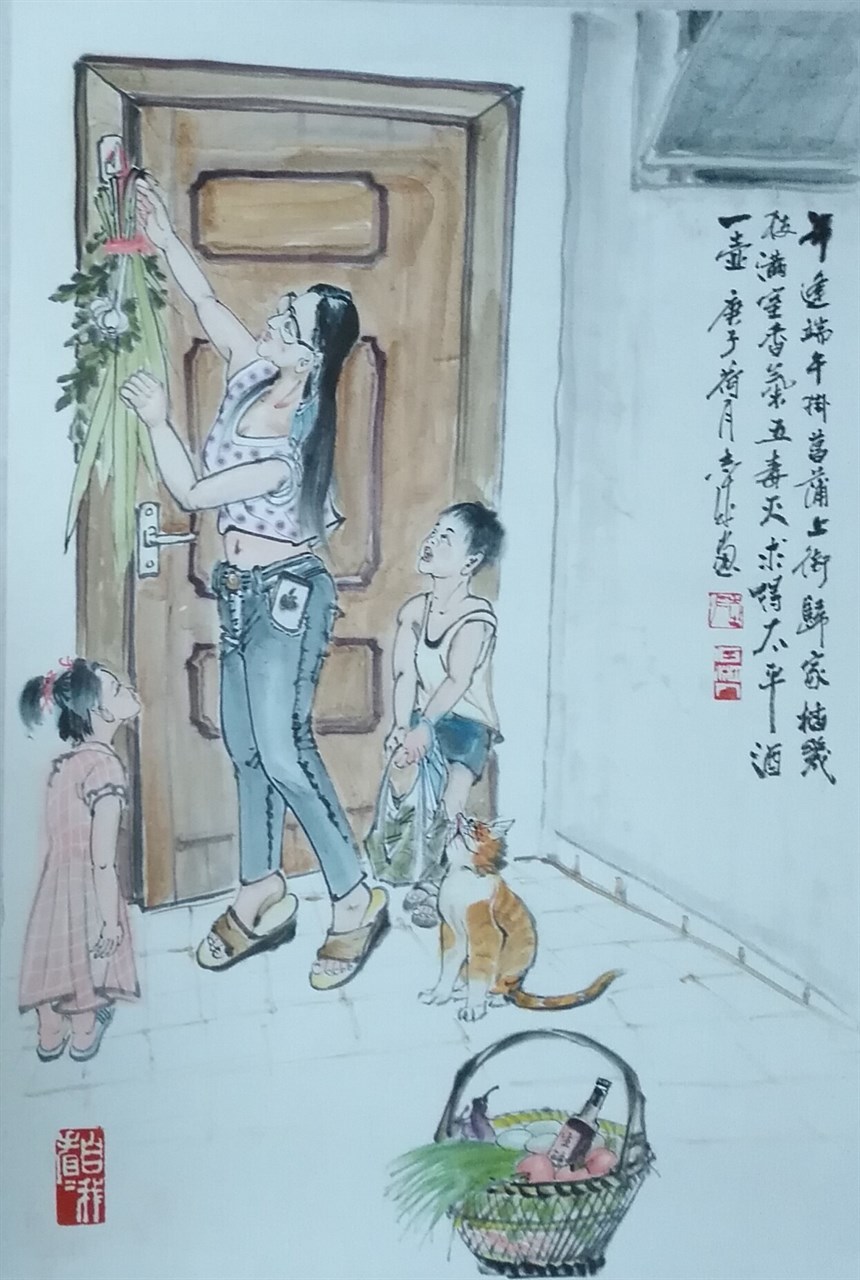 年逢端午掛菖蒲上街歸家插幾
枝滿室香氣五毒灭求喝太平酒
一壺 庚子荷月 畫